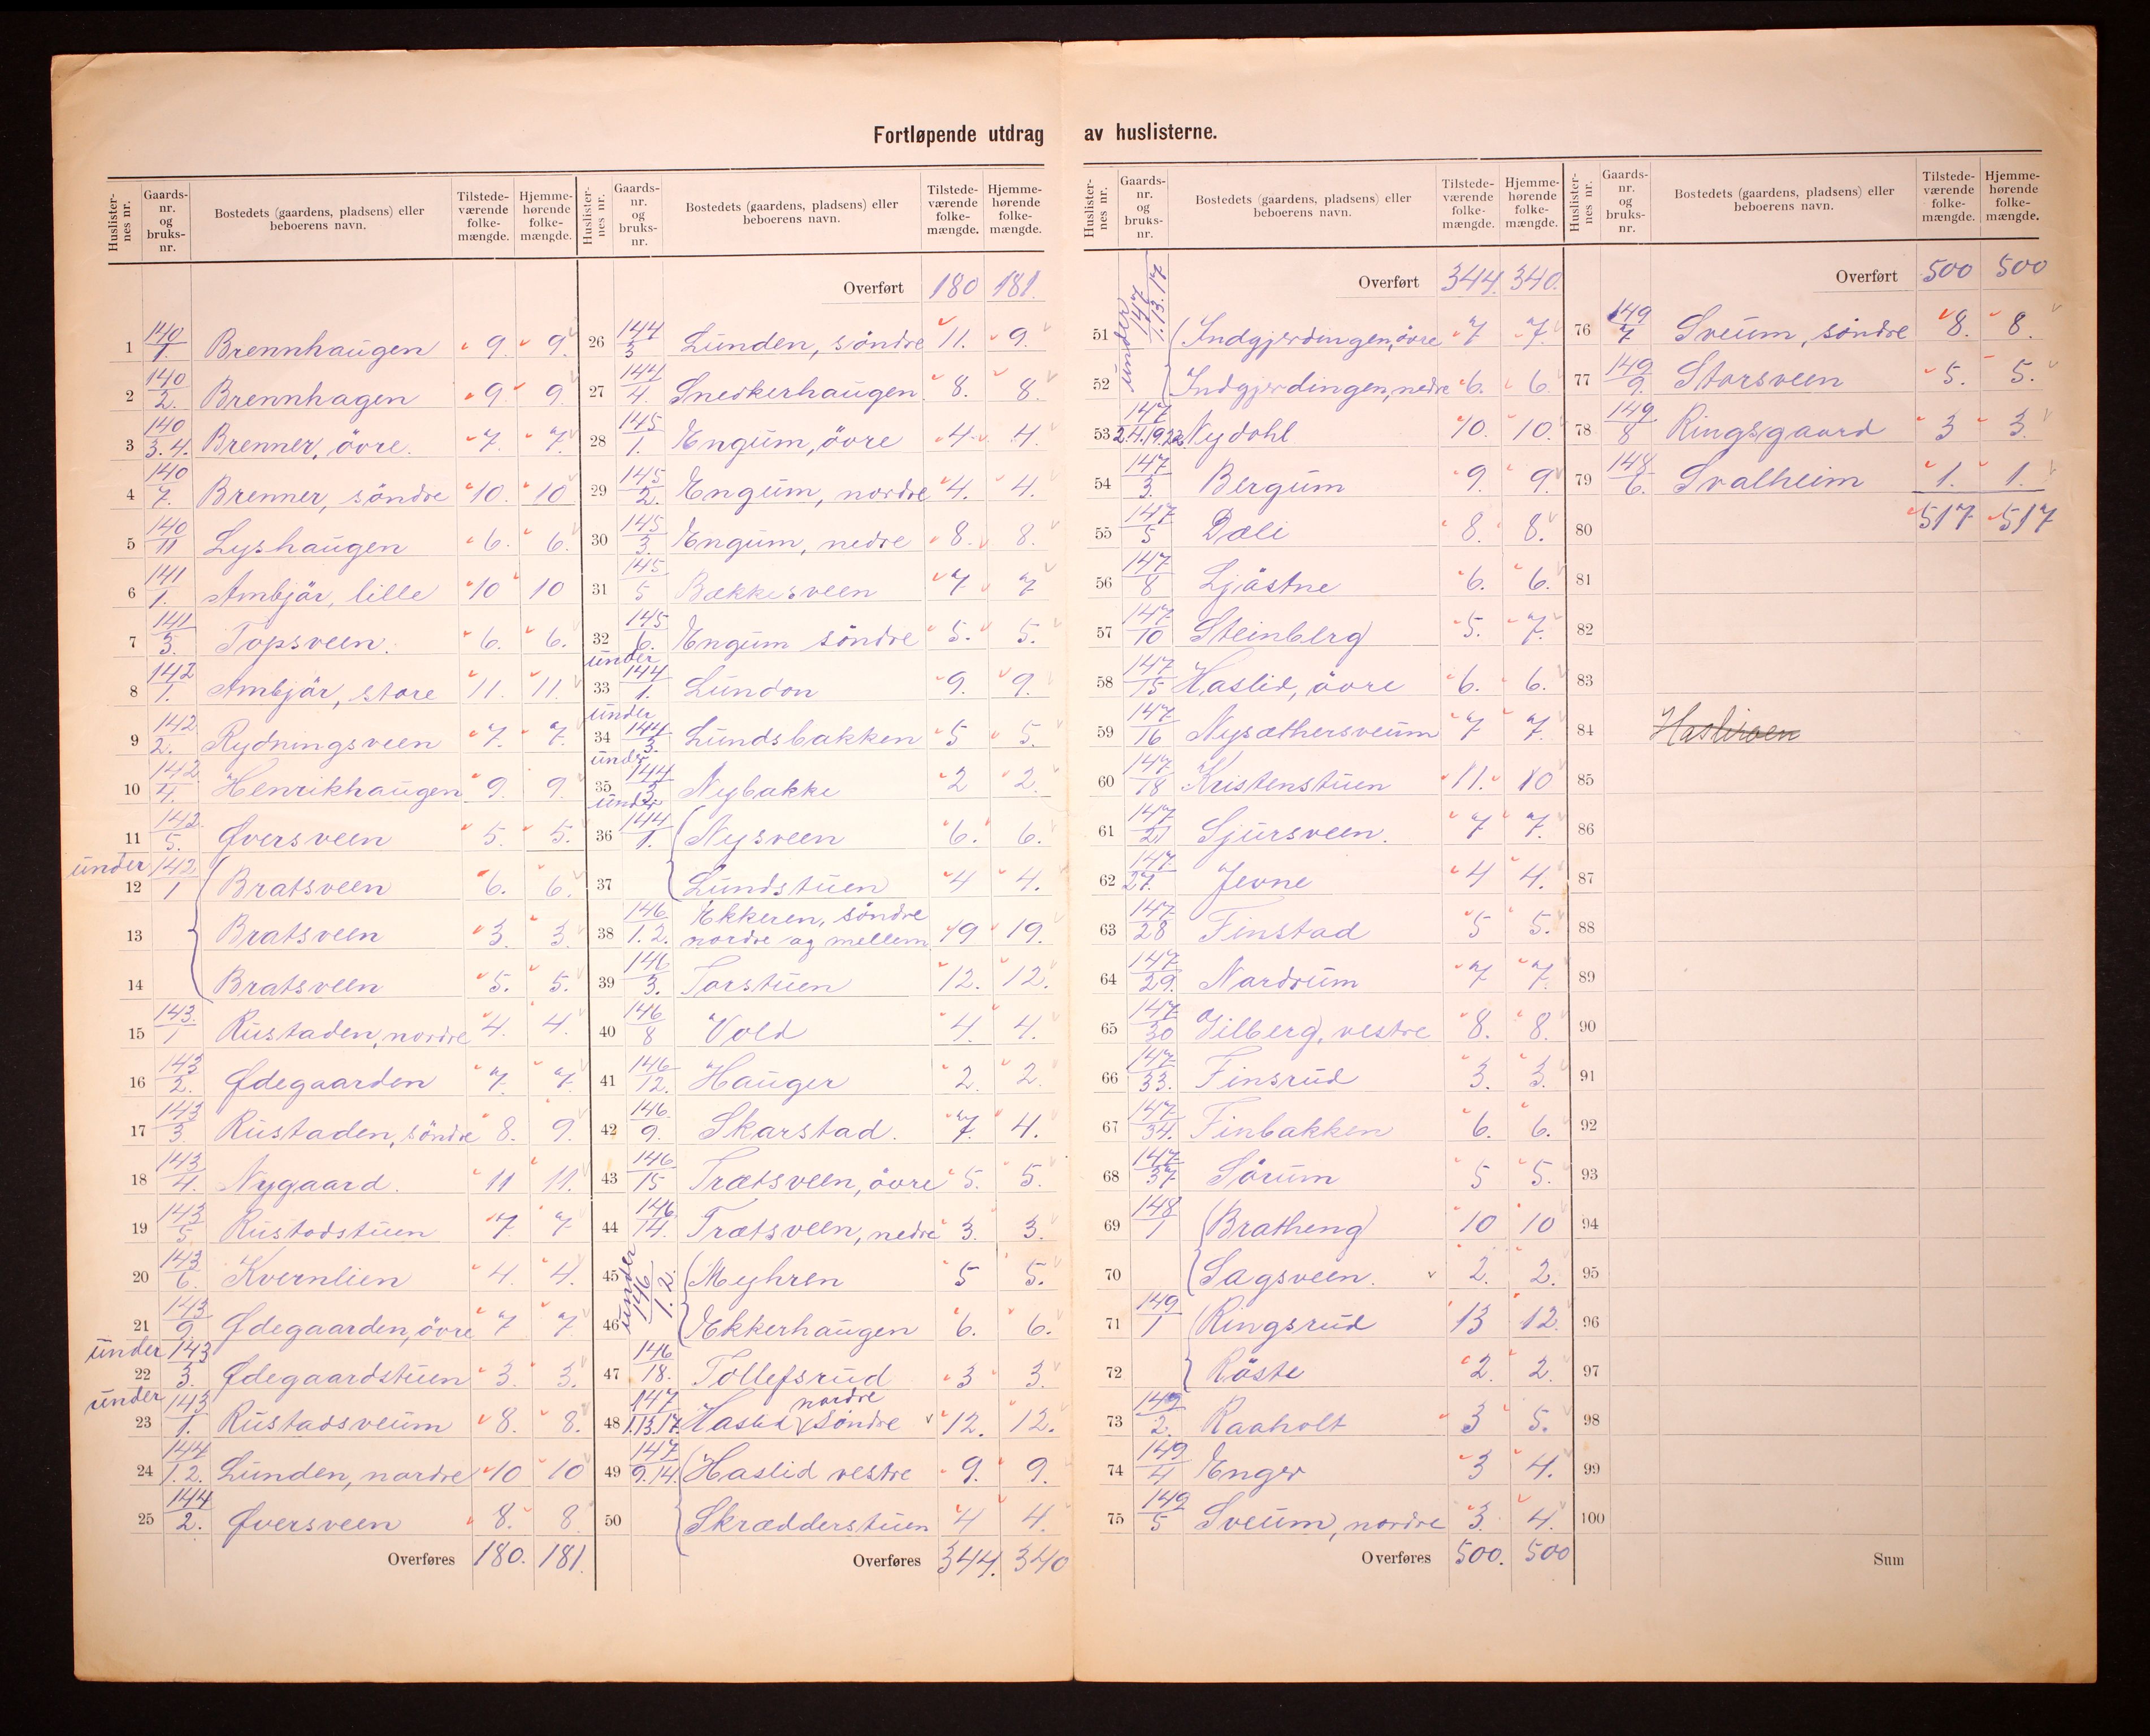 Fortløpende utdrag av huslisterne.
Huslisternes nr. Gaardsnr. og bruksnr. Bostedets (gaardens, pladsens) eller beboerens navn. Tilstedeværende folkemængde. Hjemmehørende folkemængde.
1 140/1. Brennhaugen 9. 9.
2 140/2. Brennhagen 9 9
3 140/3.4. Brenner, övre. 7. 7.
4 140/7. Brenner, söndre 10. 10
5 140/11 Lyshaugen 6. 6.
6 141/1. Ambjör, lille 10 10
7 141/3. Topsveen. 6. 6.
8 142/1. Ambjör, store 11. 11.
9 142/2. Rydningsveen 7. 7.
10 142/4. Henrikhaugen 9. 9.
11 142/5. Øversveen 5. 5.
12 under 142/1 Bratsveen 6. 6.
13 Bratsveen 3. 3.
14 Bratsveen 5. 5.
15 143./1 Rustaden, nordre 4. 4.
16 143/2. Ødegaarden 7. 7.
17 143/3. Rustaden, söndre 8. 9.
18 143/4. Nygaard. 11 11.
19 143/5 Rustadstuen 7 7
20 143/6. Kvernlien 4. 4.
21 143/9. Ødegaarden, övre 7 7
22 under 143/3. Ødegaardstuen 3. 3.
23 under 143/1. Rustadsveum 8. 8.
24 144/1.2. Lunden, nordre 10 10
25 144/2. Øversveen 8. 8
Overføres 180. 181.
Huslisternes nr. Gaardsnr. og bruksnr. Bostedets (gaardens, pladsens) eller beboerens navn. Tilstedeværende folkemængde. Hjemmehørende folkemængde.
Overført 180 181.
26 144/3 Lunden, söndre 11. 9.
27 144/4. Snedkerhaugen 8. 8.
28 145/1. Engum, övre 4. 4.
29 145/2. Engum, nordre 4. 4.
30 145/3. Engum, nedre 8. 8.
31 145/5 Bækkesveen 7 7
32 145/6. Engum söndre 5. 5.
33 under 144/1. Lundon 9. 9.
34 under 144/3. Lundsbakken 5 5.
35 under 144/3 Nybakke 2 2.
36 under 144/1. Nysveen 6. 6.
37 Lundstuen 4 4.
38 146/1.2. Ekkeren, söndre nordre og mellem 19 19.
39 146/3. Torstuen 12. 12.
40 146/8 Vold 4. 4.
41 146/12. Hauger 2. 2.
42 146./9. Skarstad. 7. 4.
43 146/15 Trætsveen, övre 5. 5.
44 146/14. Trætsveen, nedre 3. 3.
45 under 146/1.2. Myhren 5 5.
46 Ekkerhaugen 6. 6.
47 146/18. Tollefsrud 3 3.
48 147/1.13.17. Haslid nordre söndre 12. 12.
49 147/9.14. Haslid vestre 9. 9.
50 Skrædderstuen 4 4.
Overføres 344. 340
Huslisternes nr. Gaardsnr. og bruksnr. Bostedets (gaardens, pladsens) eller beboerens navn. Tilstedeværende folkemængde. Hjemmehørende folkemængde.
Overført 344. 340.
51 under 147/1.13.17 Indgjerdingen, övre 7 7.
52 Indgjerdingen, nedre 6. 6.
53 147/2.4.19.22 Nydohl 10. 10.
54 147/3. Bergum 9. 9.
55 147/5 Dæli 8. 8.
56 147/8 Ljöstne 6. 6.
57 147/10 Steinberg 5. 7.
58 147/15 Haslid, övre 6. 6.
59 147/16 Nysæthersveum 7 7.
60 147/18 Kristenstuen 11. 10
61 147/21 Sjursveen. 7 7.
62 147./27. Jevne 4 4.
63 147/28 Finstad 5 5.
64 147/29. Nordrum 7 7.
65 147/30 Vilberg, vestre 8. 8.
66 147/33. Finsrud 3. 3.
67 147/34. Finbakken 6. 6.
68 147/37 Sörum 5 5.
69 148/1 Bratheng 10 10
70 Sagsveen. 2. 2.
71 149/1 Ringsrud 13 12.
72 Röste 2. 2.
73 149/2. Raaholt 3 5.
74 149/4 Enger 3 4.
75 149/5 Sveum, nordre 3. 4.
Overføres 500. 500
Huslisternes nr. Gaardsnr. og bruksnr. Bostedets (gaardens, pladsens) eller beboerens navn. Tilstedeværende folkemængde. Hjemmehørende folkemængde.
Overført 500 500
76 149/7 Sveum, söndre 8. 8.
77 149/9. Storsveen 5. 5.
78 149/8 Ringsgaard 3 3.
79 148/6. Svalheim 1. 1.
80 517 517
81
82
83
84
85
86
87
88
89
90
91
92
93
94
95
96
97
98
99
100
Sum